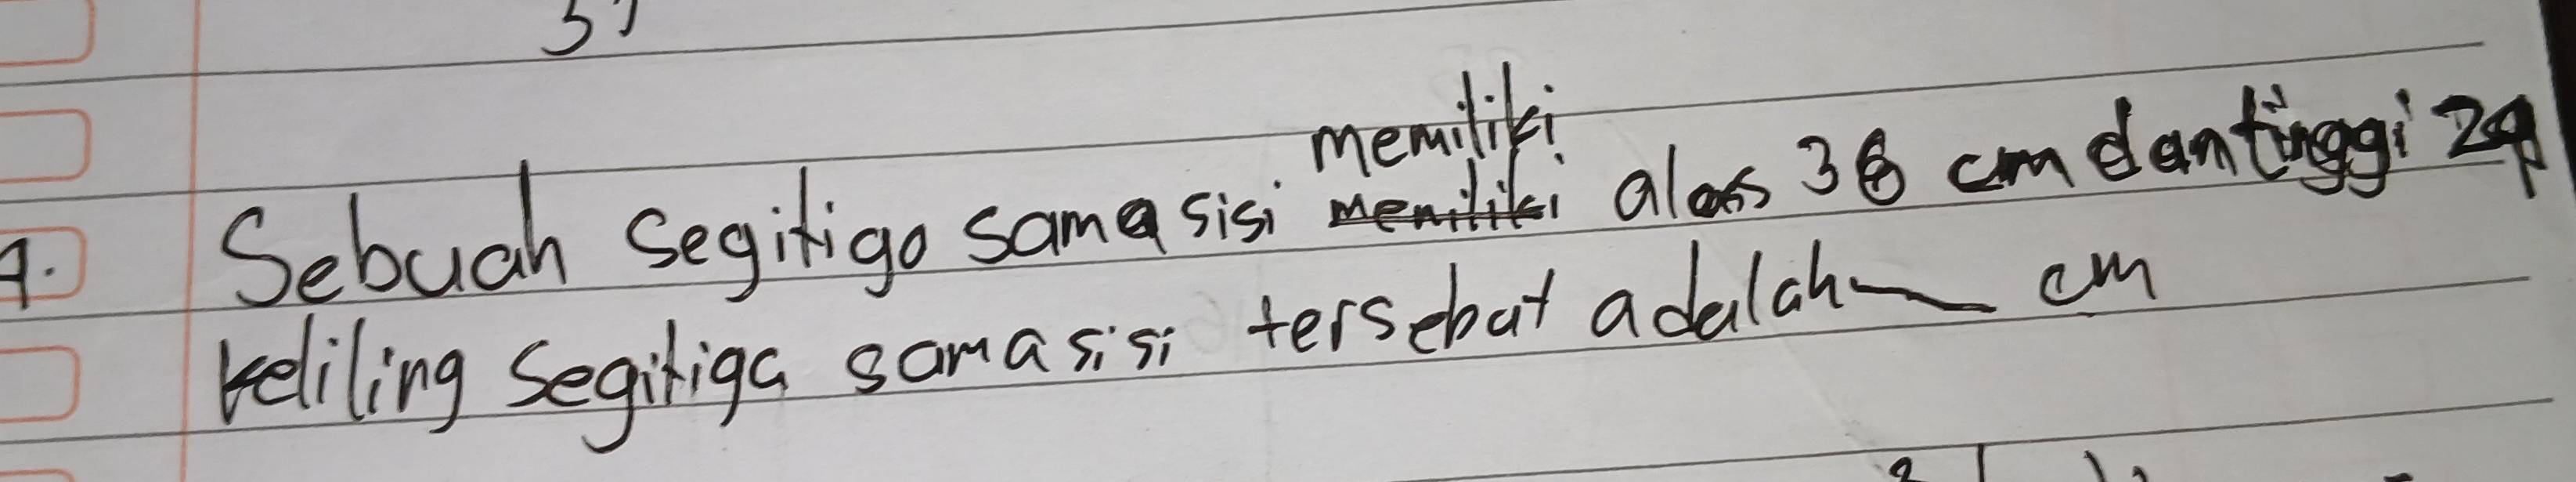 memiliki
4. Sebuah segitiga sama sisi memiliki alas 36 cm dan tinggi 24
keliling segitiga samasisi tersebut adalah cm